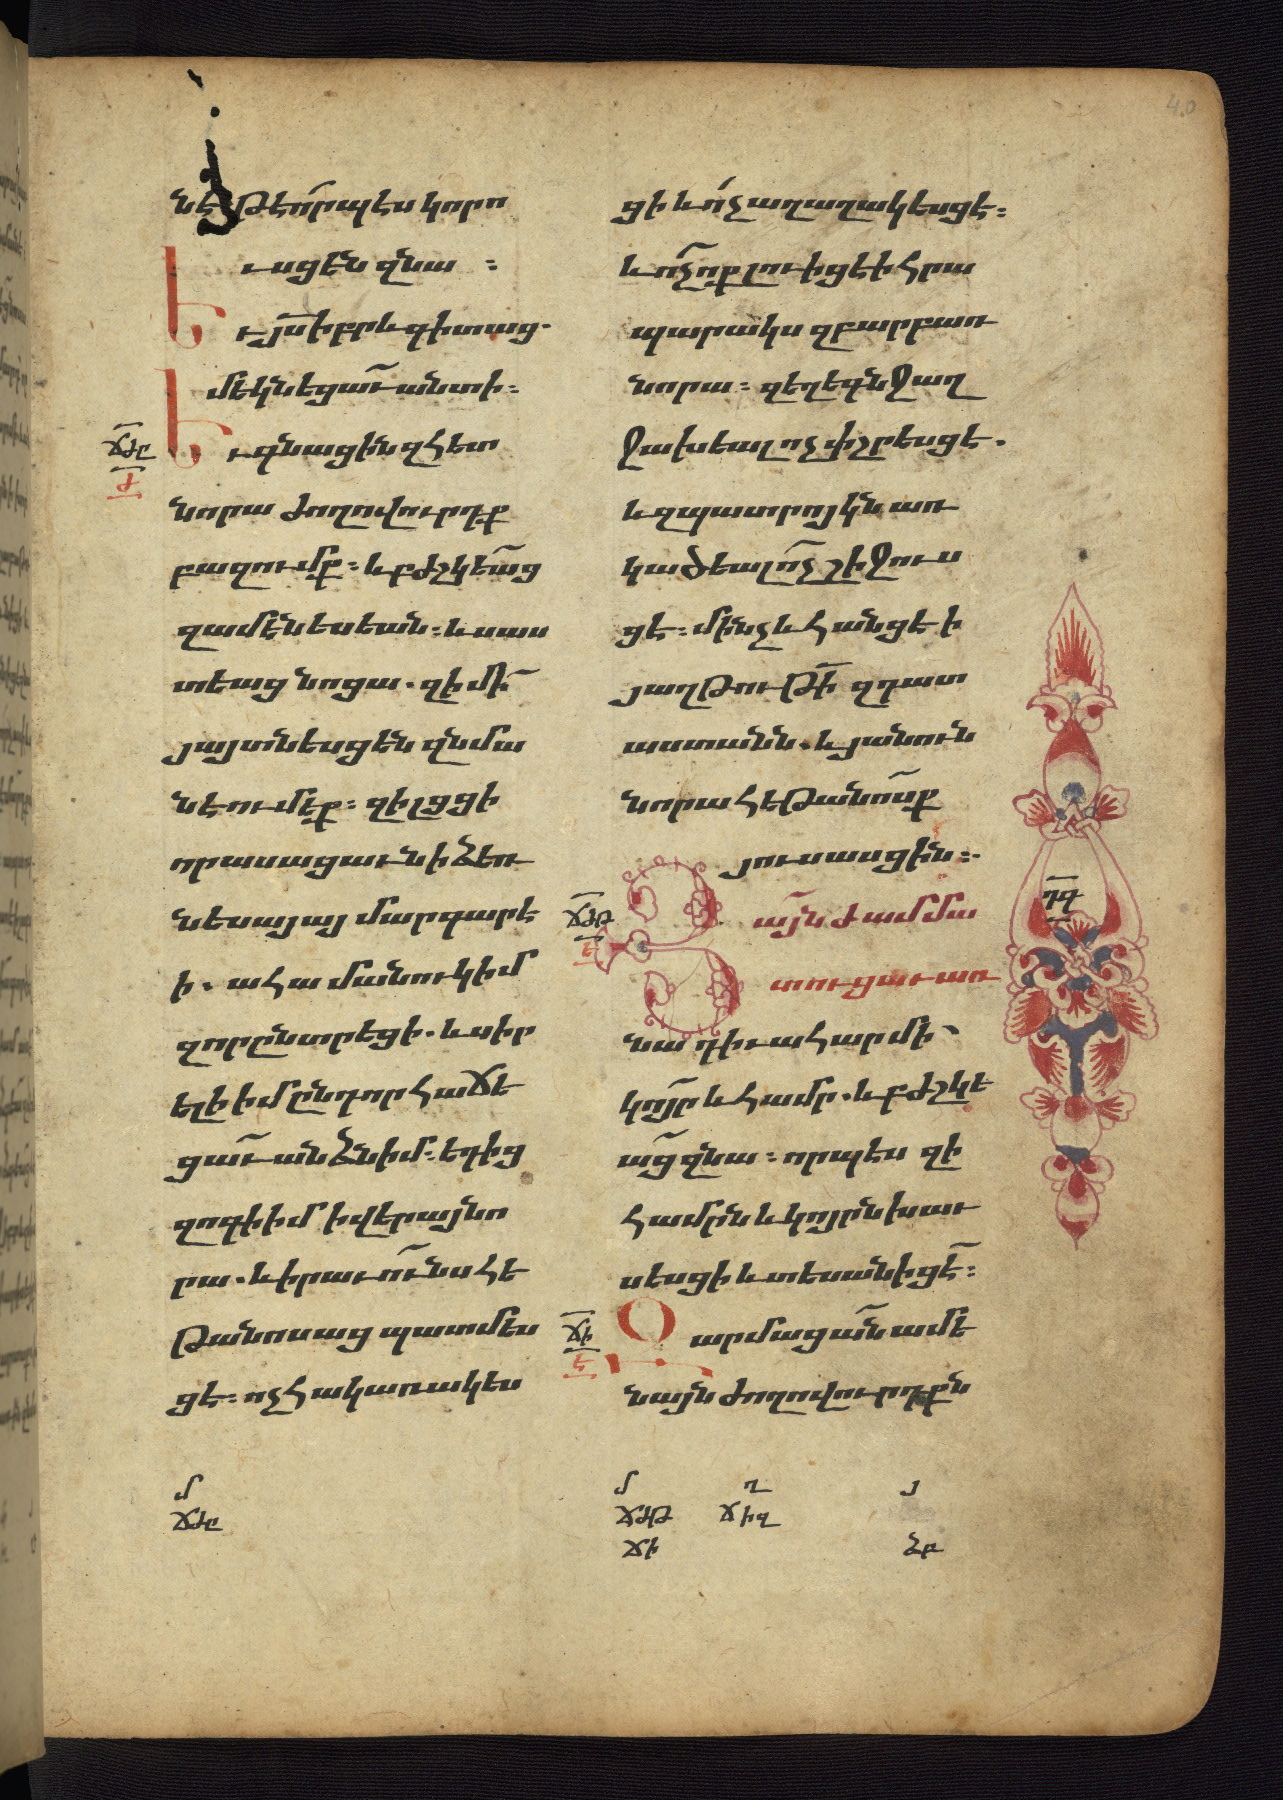 40
նէ թէ ո՛րպէս կորո
ւսցեն զնա ։
Եւ յս իբրև գիտաց.
մեկնեցաւ անտի ։
ՃԺԸ
Ժ
Եւ գնացին զհետ
նորա ժողովուրդք
բազումք ։ և բժշկեաց
զամենեսեան ։ և սաս
տեաց նոցա . զի մի՛
յայտնեսցեն զնմա
նէ ումեք ։ զի լցցի
որ ասացաւ ի ձեռ
ն եսայայ մարգարէ
ի . ահա մանուկ իմ
զոր ընտրեցի . և սիր
ելի իմ ընդ որ հաճե
ցաւ անձն իմ ։ եդից
զոգի իմ ի վերայ նո
րա . և իրաւունս հե
թանոսաց պատմես
ցէ ։ ոչ հակառակես
ցի և ո՛չ աղաղակեսցէ ։
և ո՛չ ոք լուիցէ ի հրա
պարակս զբարբառ
նորա ։ զեղեգն ջաղ
ջախեալ ոչ փշրեսցէ .
և զպատրոյկն առ
կածեալ ո՛չ շիջուս
ցէ ։ մինչև հանցէ ի
յաղթութի զդատ
աստանն . և յանուն
նորա հեթանոսք
յուսասցին ։
ՃԺԹ
Ե
Յայն ժամ մա
տուցաւ առ
նա դիւահար մի՛
կոյր և համր . և բժշկե
աց զնա ։ որպէս զի
համրն և կոյրն խաւ
սեսցի և տեսանիցէ ։
ՃԻ
Է
Զարմացան ամե
նայն ժողովուրդքն
ԴԳ
մ
ՃԺԸ
մ
ՃԺԹ
ՃԻ
ղ
ՃԻԶ
յ
ՁԲ